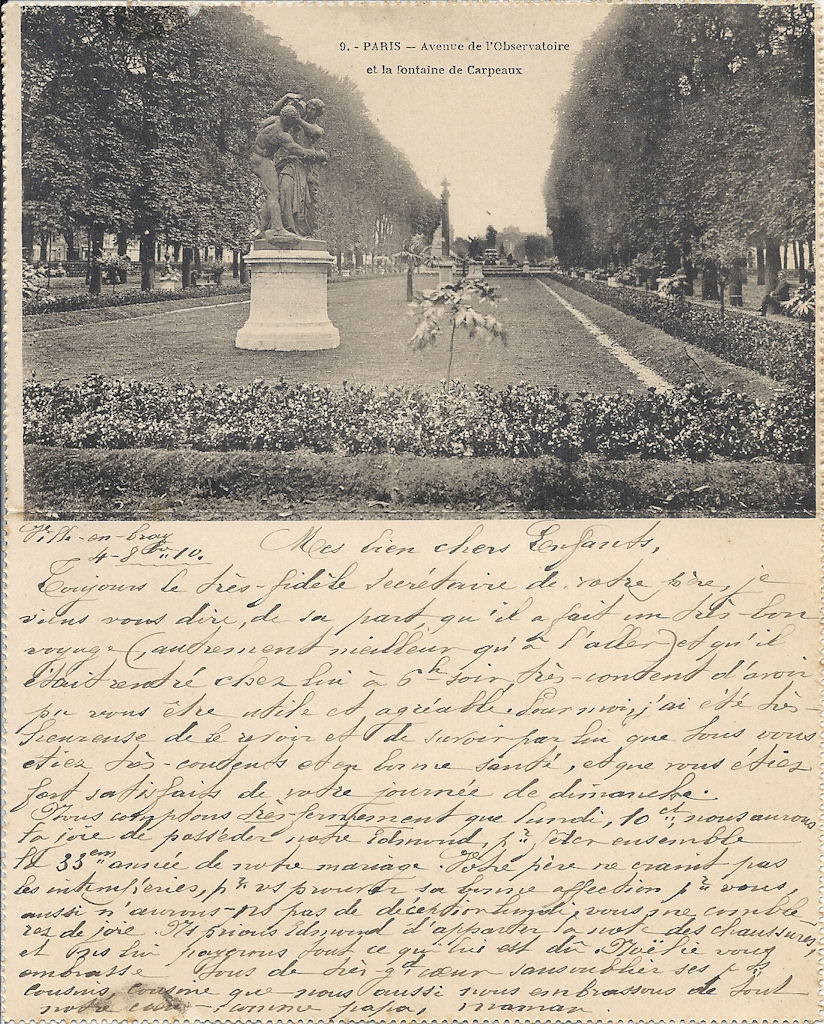 9. - PARIS — Avenue de l'Observatoire
et la fontaine de Carpeaux
4-8bre 10.
Mes bien chers Enfants,
Toujours le très-fidèle secrétaire de votre père, je
viens vous dire, de sa part, qu'il a fait un très-bon
voyage (autrement meilleur qu'à l'aller) et qu'il
était rentré chez lui à 6h soir très-content d'avoir
pu vous être utile et agréable. Pour moi, j'ai été très-
heureuse de le revoir et de savoir par lui que tous vous
étiez très-contents et en bonne santé, et que vous étiez
fort satisfaits de votre journée de dimanche.
Nous comptons très-fermement que lundi, 10 ct, nous aurons
la joie de posséder notre Edmond, pr fêter ensemble
la 33em année de notre mariage. Votre père ne craint pas
les intempéries, pr vs prouver sa bonne affection pr vous,
aussi n'aurons-ns pas de déception lundi, vous me comble-
rez de joie. Ns prions Edmond d'apporter la note des chaussures,
et ns lui payerons tout ce qui lui est dû. Noëlie vous
embrasse tous de très-gd cœur sans oublier ses pts
cousins, cousine que nous aussi nous embrassons de tout
notre cœur - comme papa, maman.